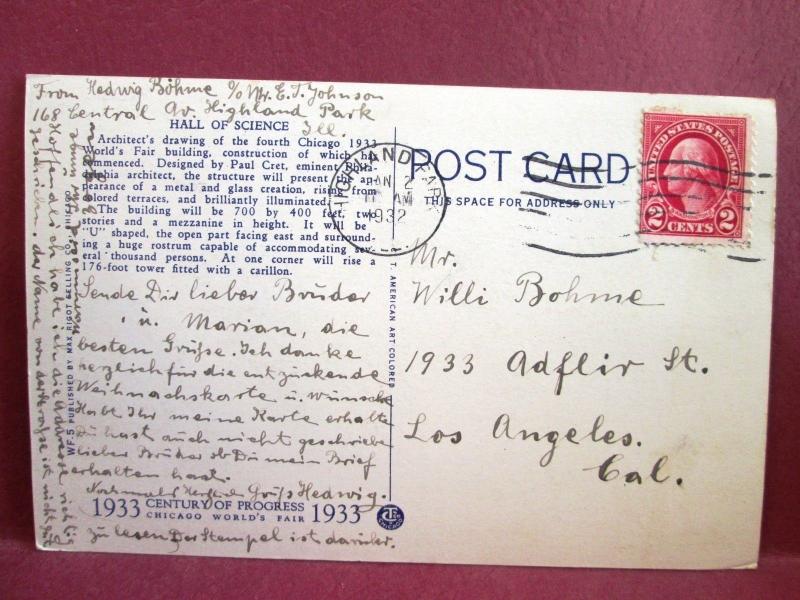 From Hedwig Böhme c/o Mr. E. T. Johnson
168 Central Av. Highland Park
Ill.
HALL OF SCIENCE
Architect's drawing of the fourth Chicago 1933
World's Fair building, construction of which has
commenced. Designed by Paul Cret, eminent Phila-
phia architect, the structure will present the ap-
pearance of a metal and glass creation, rising from
colored terraces, and brilliantly illuminated.
The building will be 700 by 400 feet, two
stories and a mezzanine in height. It will be
"U" shaped, the open part facing east and surround-
ing a huge rostrum capable of accommodating sev-
eral thousand persons. At one corner will rise a
176-foot tower fitted with a carillon.
Sende Dir lieber Bruder
u. Marian, die
besten Grüße. Ich danke
herzlich für die entzückende
Weihnachtskarte u. Wünsche
Habt Ihr meine Karte erhalte
Du hast auch nicht geschriebe
lieber Bruder ob Du mein Brief
erhalten hast.
Nochmals Gruß Hedwig.
1933 CENTURY OF PROGRESS 1933
CHICAGO WORLD'S FAIR
zu lesen Der Stempel ist darüber.
Hoffendlich habe ich die Adresse richtig
geschrieben. der Name von der Straße ist nicht gut
WF-5 PUBLISHED BY MAX RIGOT SELLING CO., CHICAGO
C. T. AMERICAN ART COLORED
CHICAGO
HIGHLAND PARK
JAN 2
11 AM
1932
POST CARD
THIS SPACE FOR ADDRESS ONLY
UNITED STATES POSTAGE
2 CENTS 2
Mr.
Willi Bohme
1933 Adflir St.
Los Angeles.
Cal.